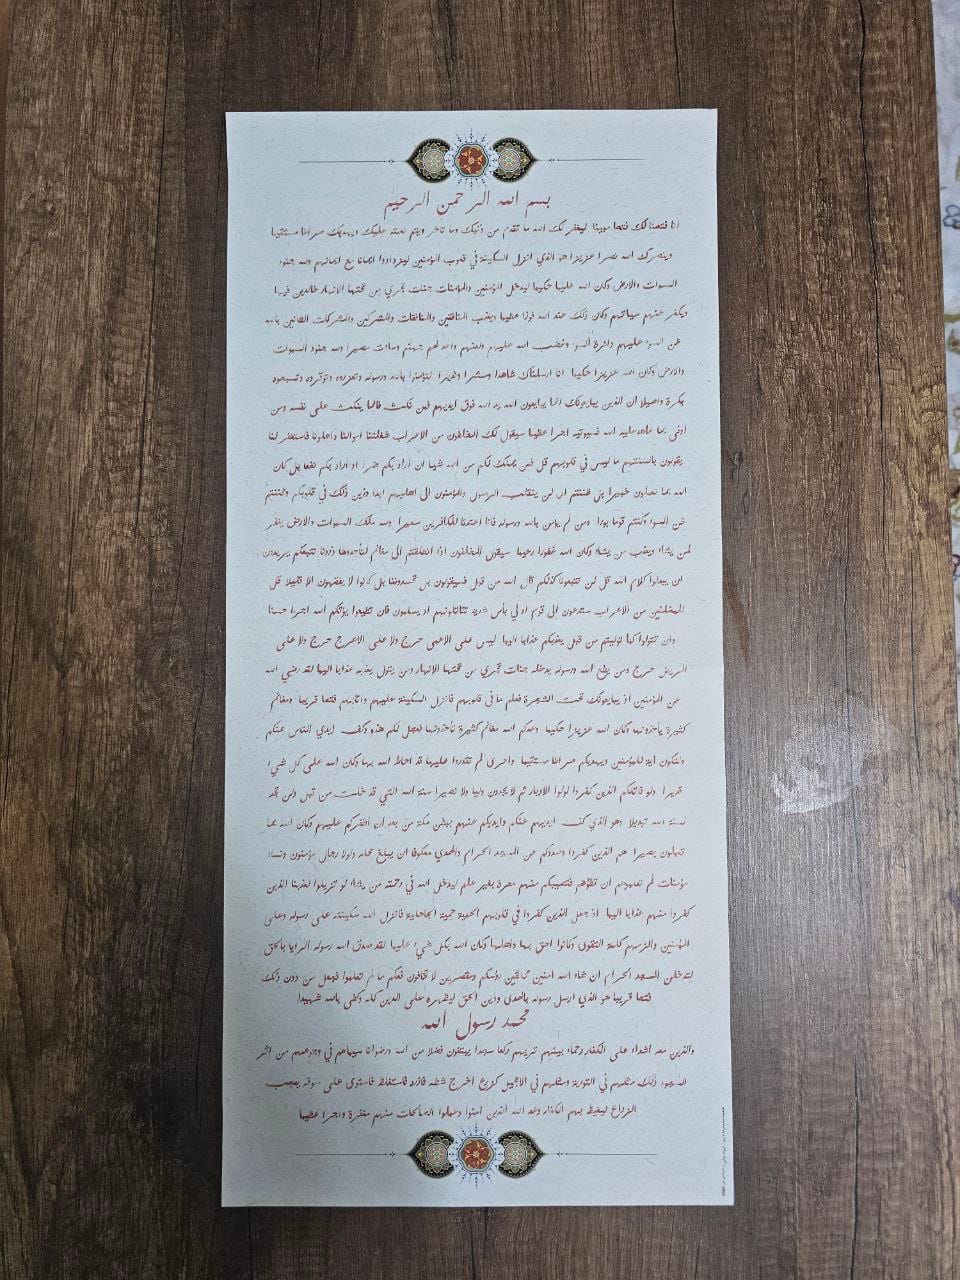 بسم الله الرحمن الرحيم
انا فتحنا لك فتحا مبينا ليغفر لك الله ما تقدم من ذنبك وما تاخر ويتم نعمته عليك ويهديك صراطا مستقيما
وينصرك الله نصرا عزيزا هو الذي انزل السكينة في قلوب المؤمنين ليزدادوا ايمانا مع ايمانهم ولله جنود
السموات والارض وكان الله عليما حكيما ليدخل المؤمنين والمؤمنات جنات تجري من تحتها الانهار خالدين فيها
ويكفر عنهم سيئاتهم وكان ذلك عند الله فوزا عظيما ويعذب المنافقين والمنافقات والمشركين والمشركات الظانين بالله
ظن السوء عليهم دائرة السوء وغضب الله عليهم ولعنهم واعد لهم جهنم وساءت مصيرا ولله جنود السموات
والارض وكان الله عزيزا حكيما انا ارسلناك شاهدا ومبشرا ونذيرا لتؤمنوا بالله ورسوله وتعزروه وتوقروه وتسبحوه
بكرة واصيلا ان الذين يبايعونك انما يبايعون الله يد الله فوق ايديهم فمن نكث فانما ينكث على نفسه ومن
اوفى بما عاهد عليه الله فسيؤتيه اجرا عظيما سيقول لك المخلفون من الاعراب شغلتنا اموالنا واهلونا فاستغفر لنا
يقولون بالسنتهم ما ليس في قلوبهم قل فمن يملك لكم من الله شيئا ان اراد بكم ضرا او اراد بكم نفعا بل كان
الله بما تعملون خبيرا بل ظننتم ان لن ينقلب الرسول والمؤمنون الى اهليهم ابدا وزين ذلك في قلوبكم وظننتم
ظن السوء وكنتم قوما بورا ومن لم يؤمن بالله ورسوله فانا اعتدنا للكافرين سعيرا ولله ملك السموات والارض يغفر
لمن يشاء ويعذب من يشاء وكان الله غفورا رحيما سيقول المخلفون اذا انطلقتم الى مغانم لتأخذوها ذرونا نتبعكم يريدون
ان يبدلوا كلام الله قل لن تتبعونا كذلكم قال الله من قبل فسيقولون بل تحسدوننا بل كانوا لا يفقهون الا قليلا قل
للمخلفين من الاعراب ستدعون الى قوم اولي بأس شديد تقاتلونهم او يسلمون فان تطيعوا يؤتكم الله اجرا حسنا
وان تتولوا كما توليتم من قبل يعذبكم عذابا اليما ليس على الاعمى حرج ولا على الاعرج حرج ولا على
المريض حرج ومن يطع الله ورسوله يدخله جنات تجري من تحتها الانهار ومن يتول يعذبه عذابا اليما لقد رضي الله
عن المؤمنين اذ يبايعونك تحت الشجرة فعلم ما في قلوبهم فانزل السكينة عليهم واثابهم فتحا قريبا ومغانم
كثيرة يأخذونها وكان الله عزيزا حكيما وعدكم الله مغانم كثيرة تأخذونها فعجل لكم هذه وكف ايدي الناس عنكم
ولتكون اية للمؤمنين ويهديكم صراطا مستقيما واخرى لم تقدروا عليها قد احاط الله بها وكان الله على كل شيء
قديرا ولو قاتلكم الذين كفروا لولوا الادبار ثم لا يجدون وليا ولا نصيرا سنة الله التي قد خلت من قبل ولن تجد
لسنة الله تبديلا وهو الذي كف ايديهم عنكم وايديكم عنهم ببطن مكة من بعد ان اظفركم عليهم وكان الله بما
تعملون بصيرا هم الذين كفروا وصدوكم عن المسجد الحرام والهدي معكوفا ان يبلغ محله ولولا رجال مؤمنون ونساء
مؤمنات لم تعلموهم ان تطؤهم فتصيبكم منهم معرة بغير علم ليدخل الله في رحمته من يشاء لو تزيلوا لعذبنا الذين
كفروا منهم عذابا اليما اذ جعل الذين كفروا في قلوبهم الحمية حمية الجاهلية فانزل الله سكينته على رسوله وعلى
المؤمنين والزمهم كلمة التقوى وكانوا احق بها واهلها وكان الله بكل شيء عليما لقد صدق الله رسوله الرءيا بالحق
لتدخلن المسجد الحرام ان شاء الله امنين محلقين رؤسكم ومقصرين لا تخافون فعلم ما لم تعلموا فجعل من دون ذلك
فتحا قريبا هو الذي ارسل رسوله بالهدى ودين الحق ليظهره على الدين كله وكفى بالله شهيدا
محمد رسول الله
والذين معه اشداء على الكفار رحماء بينهم تريهم ركعا سجدا يبتغون فضلا من الله ورضوانا سيماهم في وجوههم من اثر
السجود ذلك مثلهم في التورية ومثلهم في الانجيل كزرع اخرج شطئه فازره فاستغلظ فاستوى على سوقه يعجب
الزراع ليغيظ بهم الكفار وعد الله الذين امنوا وعملوا الصالحات منهم مغفرة واجرا عظيما